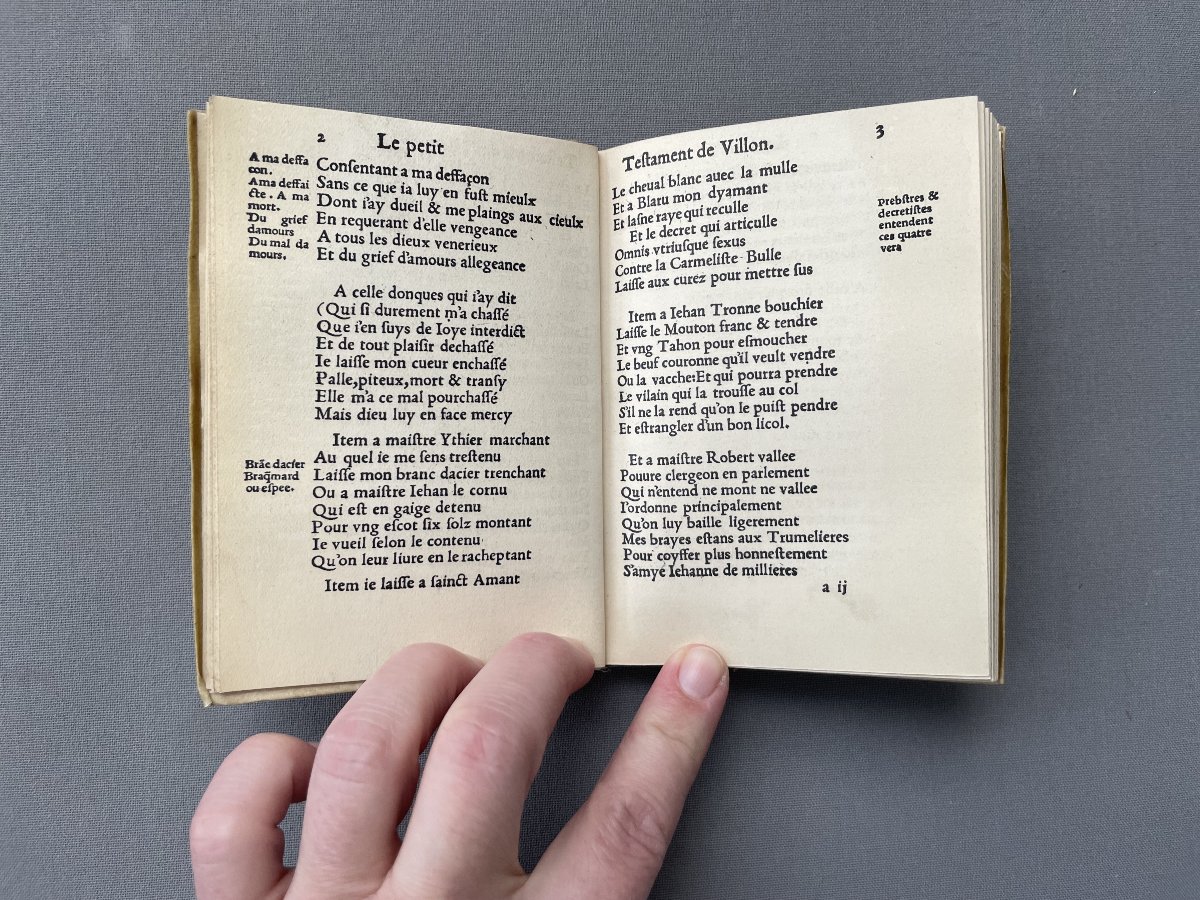 2 Le petit
A ma deffa
con.
A ma deffai
cte. A ma
mort.
Du grief
damours
Du mal da
mours.
Conſentant a ma deffaçon
Sans ce que ia luy en fuſt mieulx
Dont i'ay dueil & me plaings aux cieulx
En requerant d'elle vengeance
A tous les dieux venerieux
Et du grief d'amours allegeance
A celle donques qui i'ay dit
(Qui ſi durement m'a chaſſé
Que i'en ſuys de Ioye interdict
Et de tout plaiſir dechaſſé
Ie laiſſe mon cueur enchaſſé
Palle,piteux,mort & tranſy
Elle m'a ce mal pourchaſſé
Mais dieu luy en face mercy
Item a maiſtre Ythier marchant
Au quel ie me ſens treſtenu
Laiſſe mon branc dacier trenchant
Ou a maiſtre Iehan le cornu
Qui eſt en gaige detenu
Pour vng eſcot ſix ſolz montant
Ie vueil ſelon le contenu
Qu'on leur liure en le racheptant
Brãc dacier
Braq̃mard
ou eſpee.
Item ie laiſſe a ſainct Amant
Teſtament de Villon. 3
Le cheual blanc auec la mulle
Et a Blaru mon dyamant
Et laſne raye qui reculle
Et le decret qui articulle
Omnis vtriuſque ſexus
Contre la Carmeliſte Bulle
Laiſſe aux curez pour mettre ſus
Prebſtres &
decretiſtes
entendent
ces quatre
vers
Item a Iehan Tronne bouchier
Laiſſe le Mouton franc & tendre
Et vng Tahon pour eſmoucher
Le beuf couronne qu'il veult vendre
Ou la vacche:Et qui pourra prendre
Le vilain qui la trouſſe au col
S'il ne la rend qu'on le puiſt pendre
Et eſtrangler d'un bon licol.
Et a maiſtre Robert vallee
Pouure clergeon en parlement
Qui n'entend ne mont ne vallee
I'ordonne principalement
Qu'on luy baille ligerement
Mes brayes eſtans aux Trumelieres
Pour coyffer plus honneſtement
S'amye Iehanne de millieres
a ij